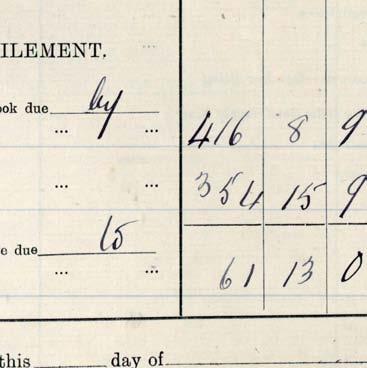 ILEMENT.
ook due by
... ... 416 8 9
... ... 354 15 9
e due to
... ... 61 13 0
this ______ day of